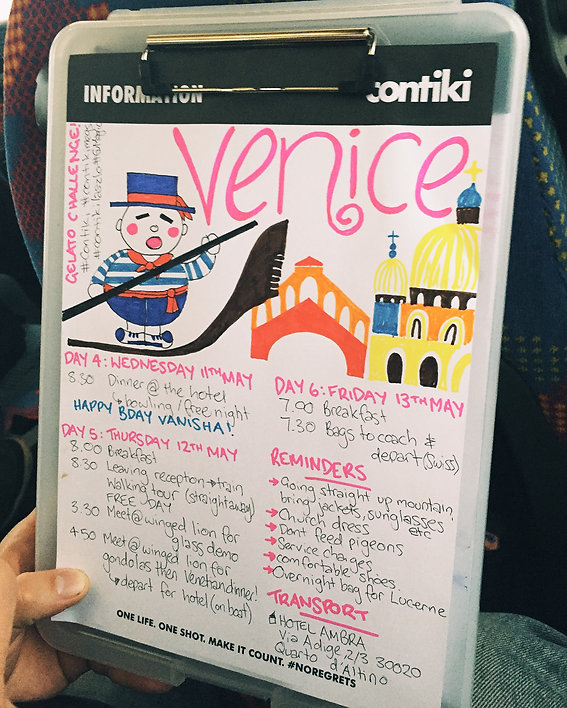 INFORMATION
contiki
GELATO CHALLENGE!
Venice
DAY 4: WEDNESDAY 11TH MAY
8 30 Dinner @ the hotel
↳ bowling / free night
HAPPY BDAY VANISHA!
DAY 5: THURSDAY 12TH MAY
8.00 Breakfast
8:30 Leaving reception → train
Walking tour (straight away)
FREE DAY
3.30 Meet @ winged lion for
glass demo
4:50 Meet @ winged lion for
gondolas then Venetian dinner!
↳ depart for hotel (on boat)
DAY 6: FRIDAY 13TH MAY
7.00 Breakfast
7.30 Bags to coach &
depart (Swiss)
REMINDERS
→ Going straight up mountain,
bring jackets, sunglasses
etc
→ Church dress
→ Dont feed pigeons
→ Service changes
→ comfortable shoes
→ Overnight bag for Lucerne
TRANSPORT
HOTEL AMBRA
Via Adige, 2/3 30020
Quarto d'Altino
ONE LIFE. ONE SHOT. MAKE IT COUNT. #NOREGRETS